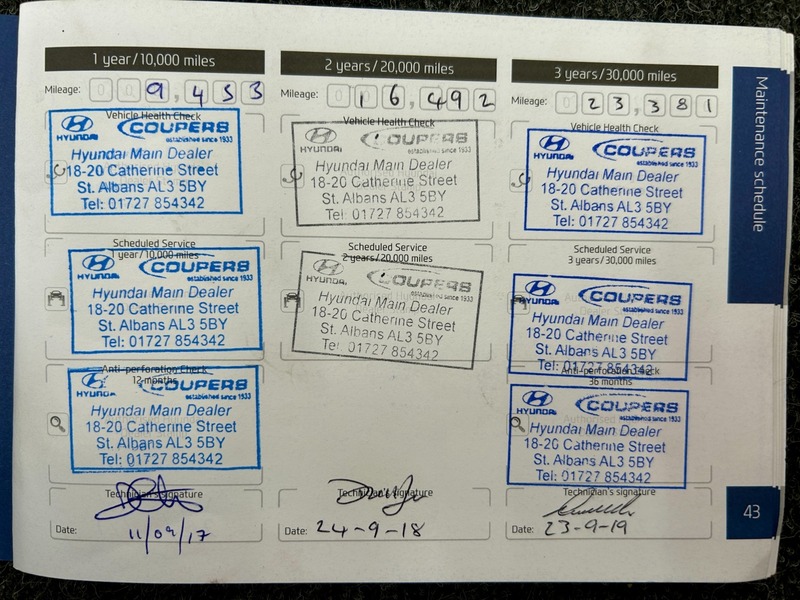 1 year/10,000 miles
Mileage: 0 0 9,453
Vehicle Health Check
HYUNDAI COUPERS
established since 1933
Hyundai Main Dealer
18-20 Catherine Street
St. Albans AL3 5BY
Tel: 01727 854342
Scheduled Service
1 year/10,000 miles
HYUNDAI COUPERS
established since 1933
Hyundai Main Dealer
18-20 Catherine Street
St. Albans AL3 5BY
Tel: 01727 854342
Anti-perforation Check
12 months
HYUNDAI COUPERS
established since 1933
Hyundai Main Dealer
18-20 Catherine Street
St. Albans AL3 5BY
Tel: 01727 854342
Technician's signature
Date: 11/09/17
2 years/20,000 miles
Mileage: 0 16,492
Vehicle Health Check
HYUNDAI COUPERS
established since 1933
Hyundai Main Dealer
18-20 Catherine Street
St. Albans AL3 5BY
Tel: 01727 854342
Scheduled Service
2 years/20,000 miles
HYUNDAI COUPERS
established since 1933
Hyundai Main Dealer
18-20 Catherine Street
St. Albans AL3 5BY
Tel: 01727 854342
Technician's signature
Date: 24-9-18
3 years/30,000 miles
Mileage: 0 23,381
Vehicle Health Check
HYUNDAI COUPERS
established since 1933
Hyundai Main Dealer
18-20 Catherine Street
St. Albans AL3 5BY
Tel: 01727 854342
Scheduled Service
3 years/30,000 miles
HYUNDAI COUPERS
established since 1933
Hyundai Main Dealer
18-20 Catherine Street
St. Albans AL3 5BY
Tel: 01727 854342
Anti-perforation Check
36 months
HYUNDAI COUPERS
established since 1933
Hyundai Main Dealer
18-20 Catherine Street
St. Albans AL3 5BY
Tel: 01727 854342
Technician's signature
Date: 23-9-19
Maintenance schedule
43